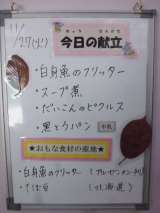 11/27(火)
きょう こんだて
今日の献立
・白身魚のフリッター
・スープ煮
・だいこんのピクルス
・黒とうパン 牛乳
★おもな食材の産地★
・白身魚のフリッター (アルゼンチン)
(北海道)